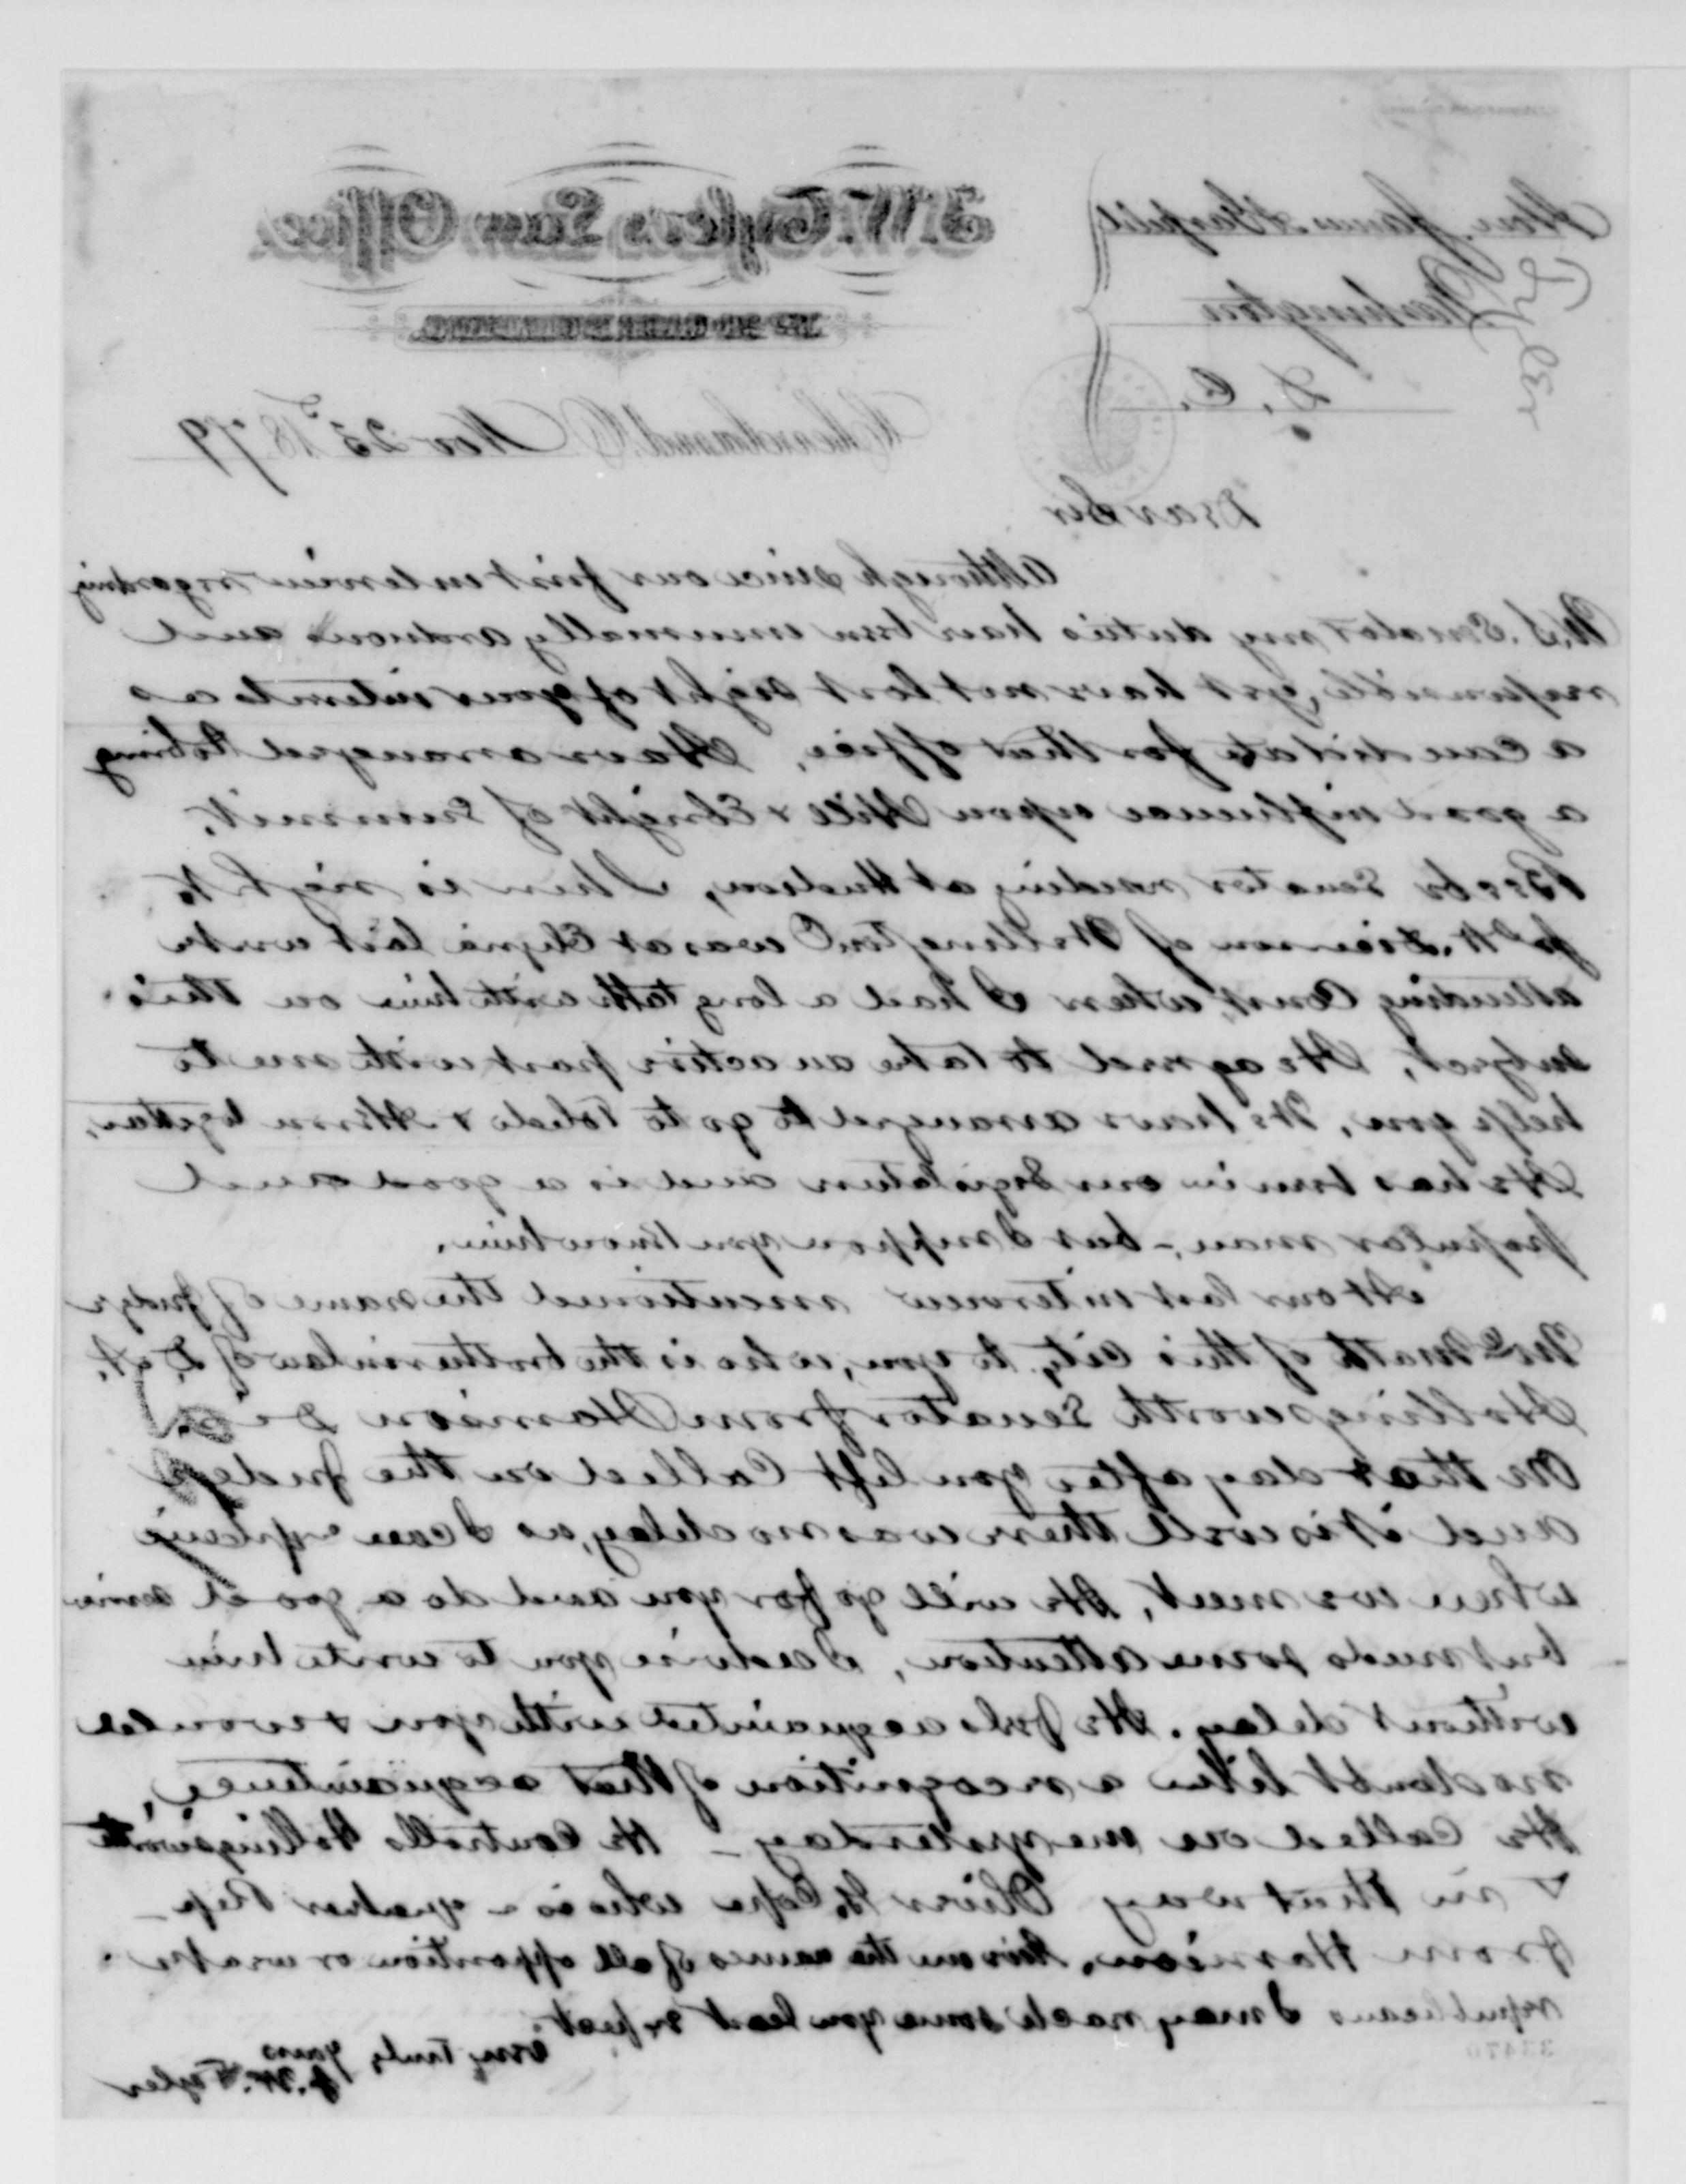 Hon. James A Garfield
Washington
D. C.
J. W. Tyler's Law Office.
Cleveland, O. Nov 25th 1879
Dear Sir
Although since our first interview regarding
U.S. Senator my duties have been unusually arduous and
responsible, yet have not lost sight of your interests as
a candidate for that office, Have arranged to bring
a good influence upon Hill & Ebright of Summit.
Beebe Senator residing at Hudson, I hear is right.
J. W. of Wellington was at Elyria last week
attending Court, when I had a long talk with him on this
subject, He agreed to take an active part with me to
help you, We have arranged to go to Toledo & together,
He has been in our Legislature and is a good and
popular man, - but I suppose you know him.
At our last interview mentioned the name of Judge
of this City, to you, who is the brother in law of D. A.
Hollingsworth Senator from Harrison
On that day after you left Called on the Judge
and it is well there was no delay, as I can explain
when we meet, He will go for you and do a good service
but needs some attention, I advise you to write him
without delay. He feels acquainted with you & would
no doubt like a recognition of that acquaintance,
He Called on me yesterday - He Controlls Hollingsworth
& in that way Oliver G. Cope who is a quaker Rep -
from Harrison. Give me the names of all opposition or weak
republicans I may reach some you least expect.
Very truly yours
J. W. Tyler
33470